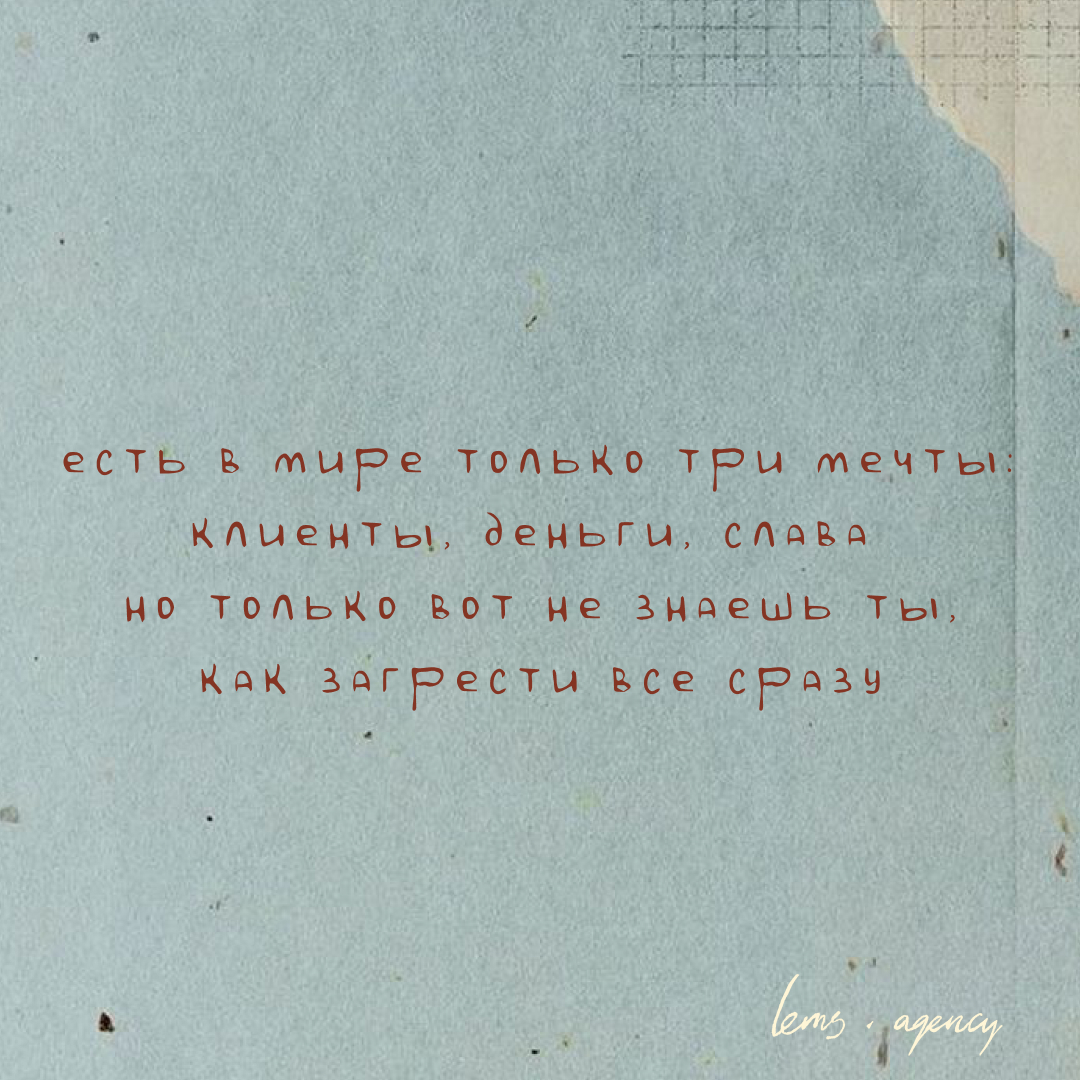 есть в мире только три мечты:
клиенты, деньги, слава
но только вот не знаешь ты,
как загрести все сразу
lems . agency